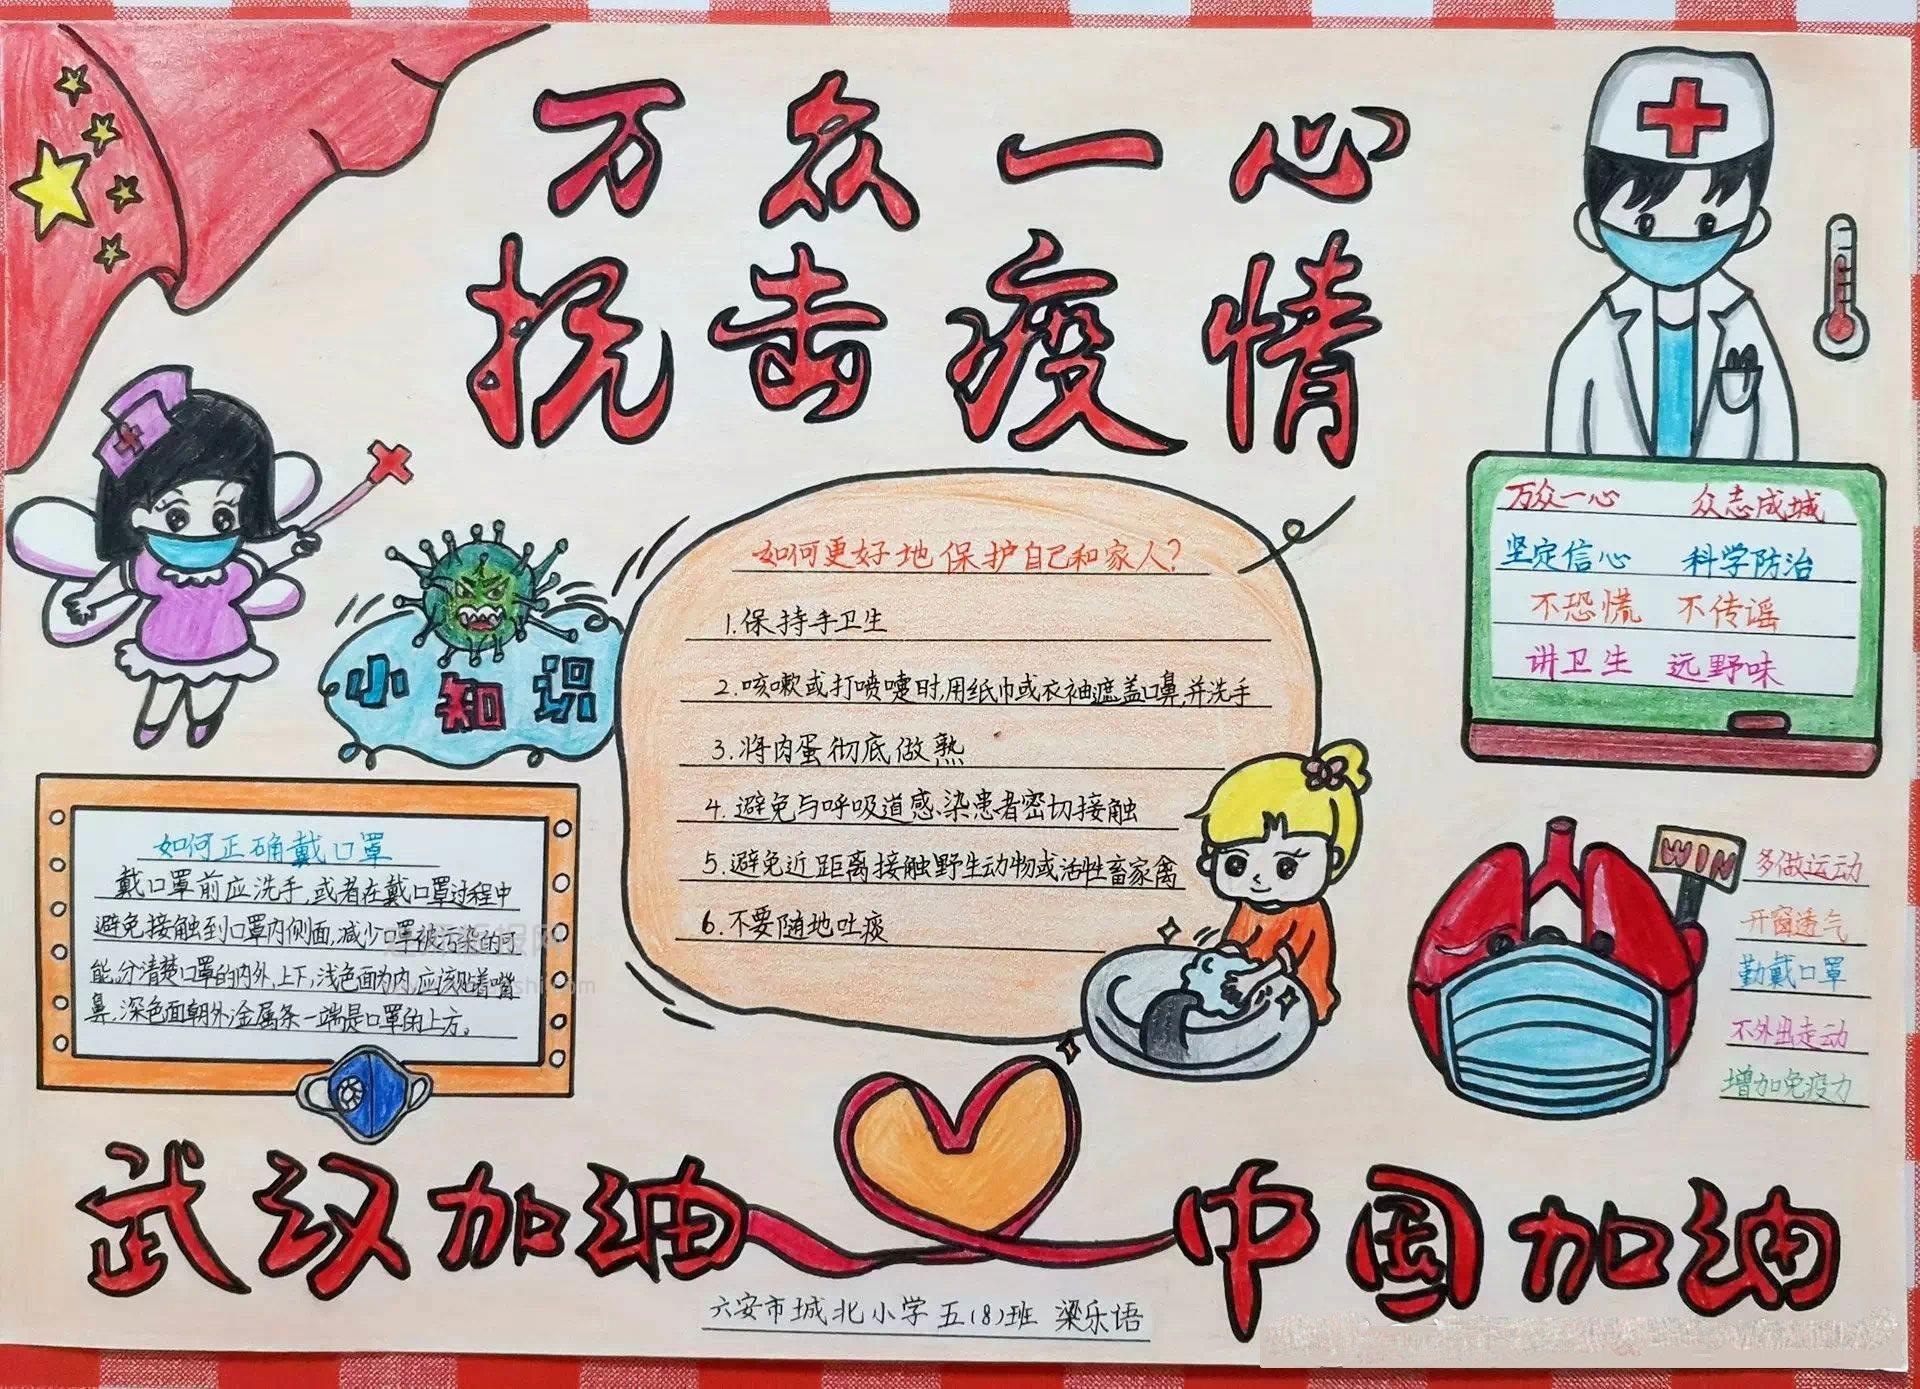 万众一心
抗击疫情
万众一心 众志成城
坚定信心 科学防治
不恐慌 不传谣
讲卫生 远野味
小知识
如何更好地保护自己和家人?
1.保持手卫生
2.咳嗽或打喷嚏时,用纸巾或衣袖遮盖口鼻,并洗手
3.将肉蛋彻底做熟
4.避免与呼吸道感染患者密切接触
5.避免近距离接触野生动物或活性畜家禽
6.不要随地吐痰
如何正确戴口罩
戴口罩前应洗手,或者在戴口罩过程中
避免接触到口罩内侧面,减少口罩被污染的可
能,分清楚口罩的内外,上下,浅色面为内,应该贴着嘴
鼻,深色面朝外,金属条一端是口罩的上方。
WIN
多做运动
开窗透气
勤戴口罩
不外出走动
增加免疫力
武汉加油 中国加油
六安市城北小学五(8)班 梁乐语